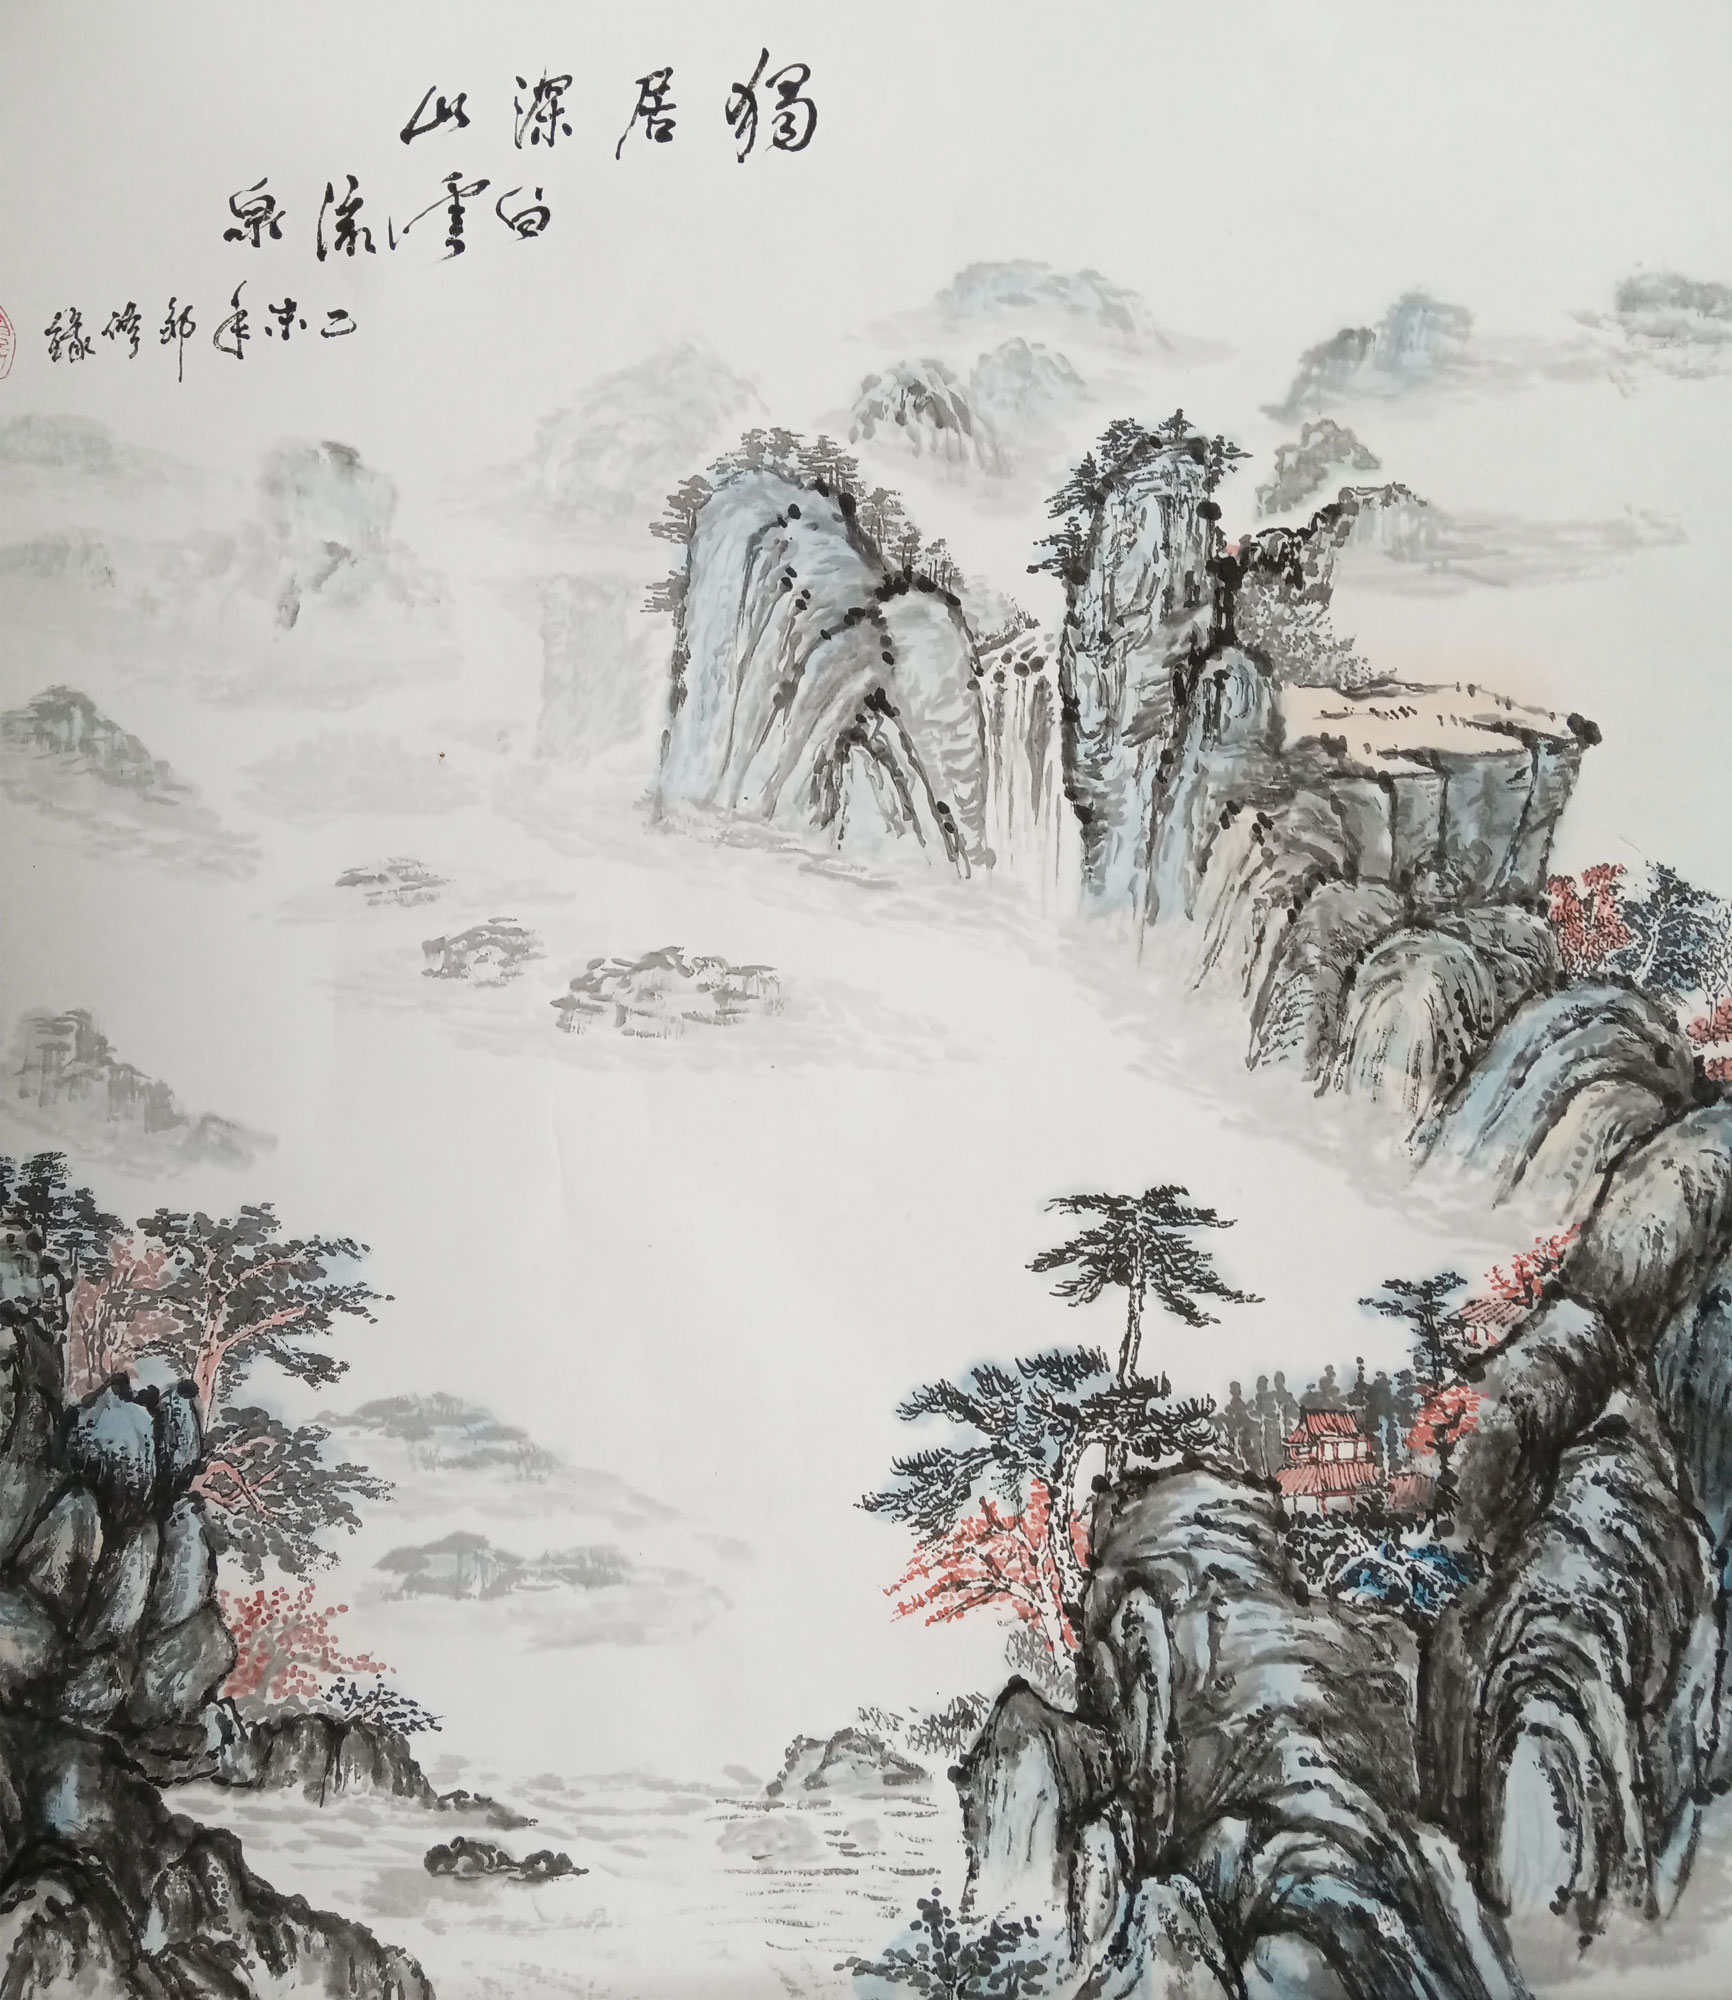 獨居深山
白雲流泉
乙未年郭修緣